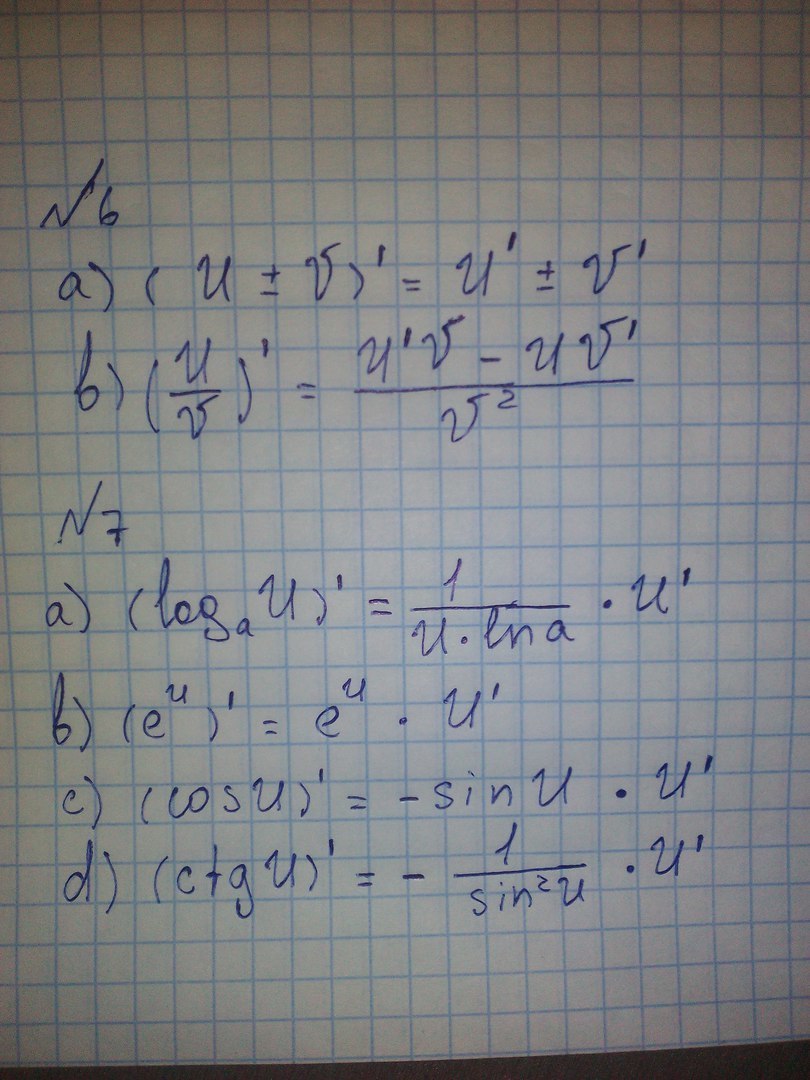 №6
a) (u ± v)' = u' ± v'
b) (u/v)' = (u'v - uv')/v²
№7
a) (logₐu)' = 1/(u·ln a) · u'
b) (eᵘ)' = eᵘ · u'
c) (cos u)' = -sin u · u'
d) (ctg u)' = - 1/(sin²u) · u'